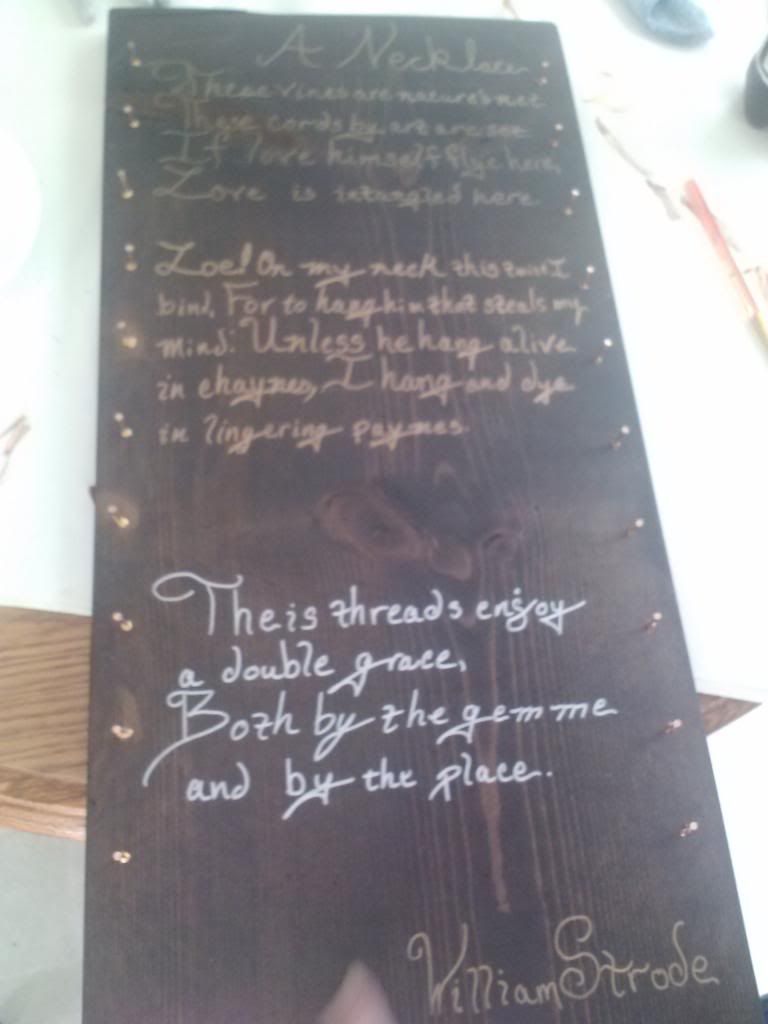 A Necklace
These vines are nature's net
These cords by art are set
If love himself flye here,
Love is intangled here
Loe! On my neck this twist I
bind, For to hang him that steals my
mind: Unless he hang alive
in chaynes, I hang and dye
in lingering paynes.
Theis threads enjoy
a double grace,
Both by the gemme
and by the place.
William Strode